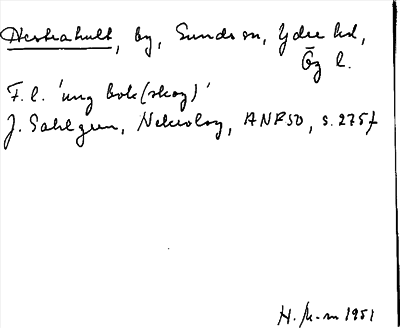 Hestrahult, by, Sunds sn, Ydre hd,
Ög l.
F.l. 'ung bok(skog)'
J. Sahlgren, Nekrolog, ANF50, s. 275f
H. 1951